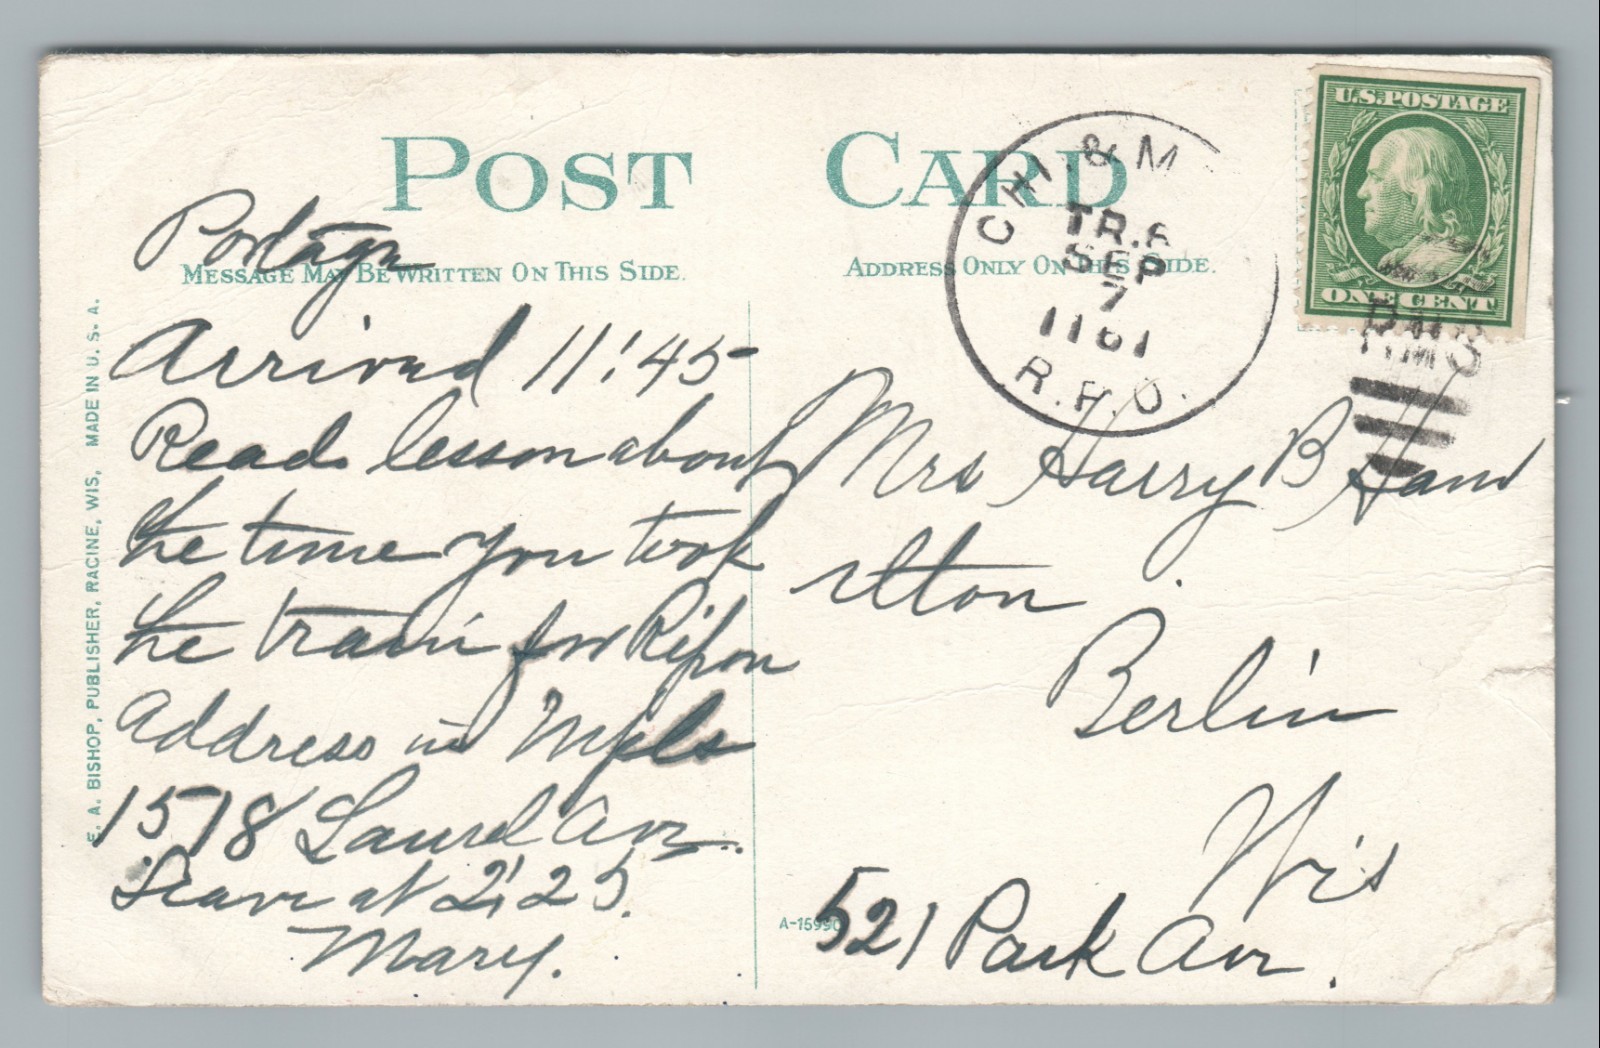 POST CARD
MESSAGE MAY BE WRITTEN ON THIS SIDE.
ADDRESS ONLY ON THIS SIDE.
Portage
Arrived 11:45
Read lesson about
the time you took
the train for Ripon
Address in Mpls
1518 Laurel Ave.
Leave at 2:25.
Mary.
E. A. BISHOP, PUBLISHER, RACINE, WIS. MADE IN U. S. A.
CHI. & M
TR.
SEP
7
R.P.O.
U.S.POSTAGE
ONE CENT
RMS
Mrs Harry B Ham
ilton
Berlin
Wis
521 Park Ave.
A-15990